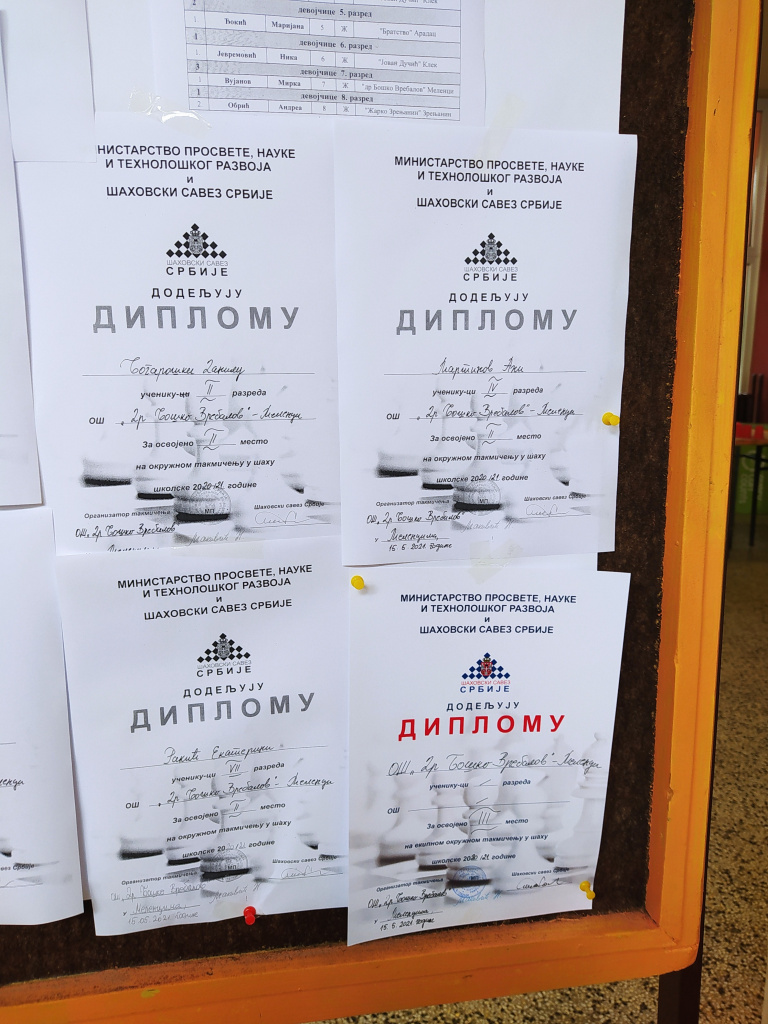 девојчице 5. разред
1 Ђокић Маријана 5 Ж "Братство" Арадац
девојчице 6. разред
1 Јевремовић Ника 6 Ж "Јован Дучић" Клек
девојчице 7. разред
1 Вујанов Мирка 7 Ж "др Бошко Вребалов" Меленци
девојчице 8. разред
2 Обрић Андреа 8 Ж "Жарко Зрењанин" Зрењанин
НИСТАРСТВО ПРОСВЕТЕ, НАУКЕ
И ТЕХНОЛОШКОГ РАЗВОЈА
и
ШАХОВСКИ САВЕЗ СРБИЈЕ
ШАХОВСКИ САВЕЗ
СРБИЈЕ
ДОДЕЉУЈУ
ДИПЛОМУ
Богарошки Данилу
ученику-ци II разреда
ОШ „Др Бошко Вребалов"-Меленци
За освојено II место
на окружном такмичењу у шаху
школске 2020/21 године
Организатор такмичења МП Шаховски савез Србије
ОШ „Др Бошко Вребалов"
МИНИСТАРСТВО ПРОСВЕТЕ, НАУКЕ
И ТЕХНОЛОШКОГ РАЗВОЈА
и
ШАХОВСКИ САВЕЗ СРБИЈЕ
ШАХОВСКИ САВЕЗ
СРБИЈЕ
ДОДЕЉУЈУ
ДИПЛОМУ
Мартинов Ани
ученику-ци IV разреда
ОШ „Др Бошко Вребалов"-Меленци
За освојено II место
на окружном такмичењу у шаху
школске 2020/21 године
Организатор такмичења МП Шаховски савез Србије
ОШ „Др Бошко Вребалов"
У Меленцима,
15.5.2021. године
МИНИСТАРСТВО ПРОСВЕТЕ, НАУКЕ
И ТЕХНОЛОШКОГ РАЗВОЈА
и
ШАХОВСКИ САВЕЗ СРБИЈЕ
ШАХОВСКИ САВЕЗ
СРБИЈЕ
ДОДЕЉУЈУ
ДИПЛОМУ
Ракић Екатерини
ученику-ци VII разреда
ОШ „Др Бошко Вребалов"-Меленци
За освојено II место
на окружном такмичењу у шаху
школске 2020/21 године
Организатор такмичења МП Шаховски савез Србије
ОШ „Др Бошко Вребалов"
У Меленцима,
15.05.2021. године
МИНИСТАРСТВО ПРОСВЕТЕ, НАУКЕ
И ТЕХНОЛОШКОГ РАЗВОЈА
и
ШАХОВСКИ САВЕЗ СРБИЈЕ
ШАХОВСКИ САВЕЗ
СРБИЈЕ
ДОДЕЉУЈУ
ДИПЛОМУ
ОШ „Др Бошко Вребалов"-Меленци
ученику-ци разреда
ОШ
За освојено III место
на екипном окружном такмичењу у шаху
школске 2020/21 године
Организатор такмичења МП Шаховски савез Србије
ОШ „Др Бошко Вребалов"
У Меленцима,
15.5.2021. године